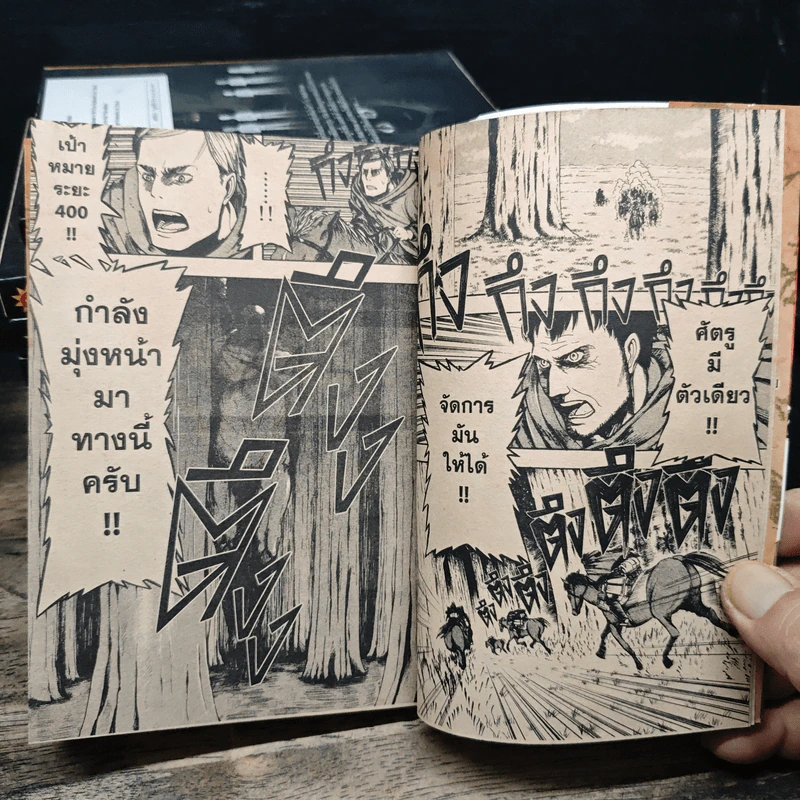 เป้า
หมาย
ระยะ
400
!!
……
!!
กำลัง
มุ่งหน้า
มา
ทางนี้
ครับ
!!
ตึง
ตึง
กึง กึง กึง กึง กึง
ศัตรู
มี
ตัวเดียว
!!
จัดการ
มัน
ให้ได้
!!
ตึง ตึง ตึง
ตึง ตึง ตึง